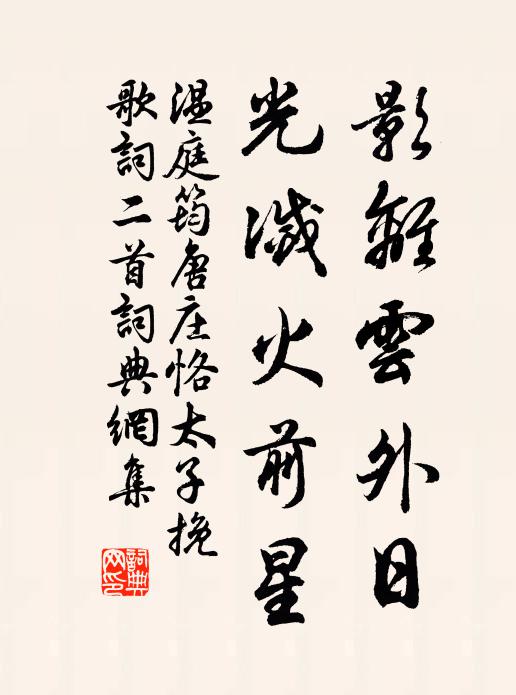 影離雲外日
光滅火前星
温庭筠唐庄恪太子挽
歌詞二首詞典網集
詞典
网印